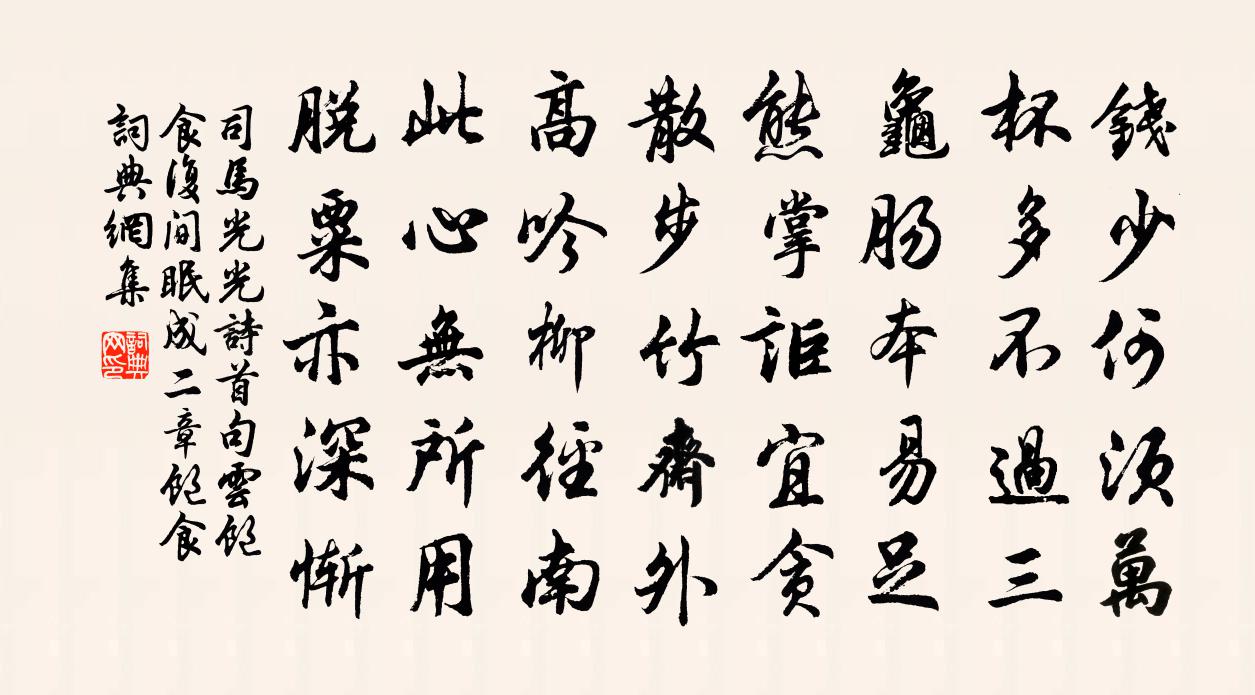 錢少何須萬
杯多不過三
龜腸本易足
熊掌詎宜貪
散步竹齋外
高吟柳徑南
此心無所用
脫粟亦深慚
司馬光光詩首句雲飽
食復間眠成二章飽食
詞典網集
詞典網印